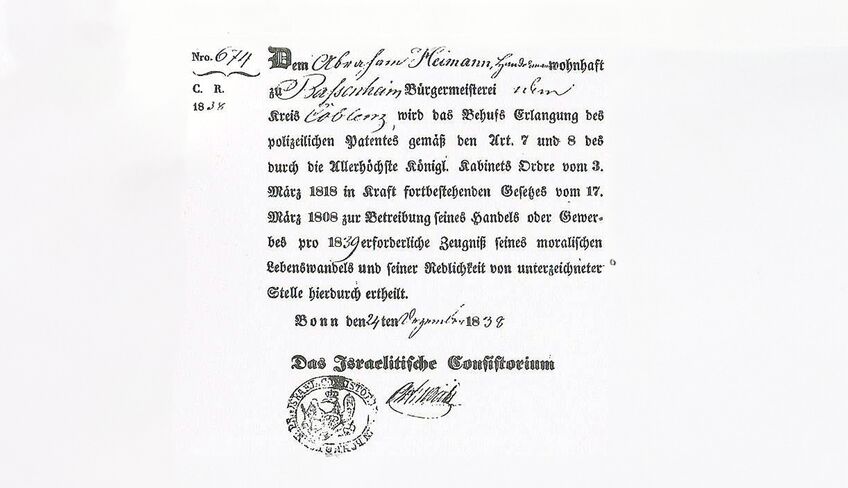 Nro. 674
C. R.
1838
Dem Abraham Heimann, Handelsmann wohnhaft
zu Bassenheim Bürgermeisterei idem
Kreis Coblenz, wird das Behufs Erlangung des
polizeilichen Patentes gemäß den Art. 7 und 8 des
durch die Allerhöchste Königl. Kabinets Ordre vom 3.
März 1818 in Kraft fortbestehenden Gesetzes vom 17.
März 1808 zur Betreibung seines Handels oder Gewer-
bes pro 1839 erforderliche Zeugniß seines moralischen
Lebenswandels und seiner Redlichkeit von unterzeichneter
Stelle hierdurch ertheilt.
Bonn den 24ten Dezember 1838
Das Israelitische Consistorium